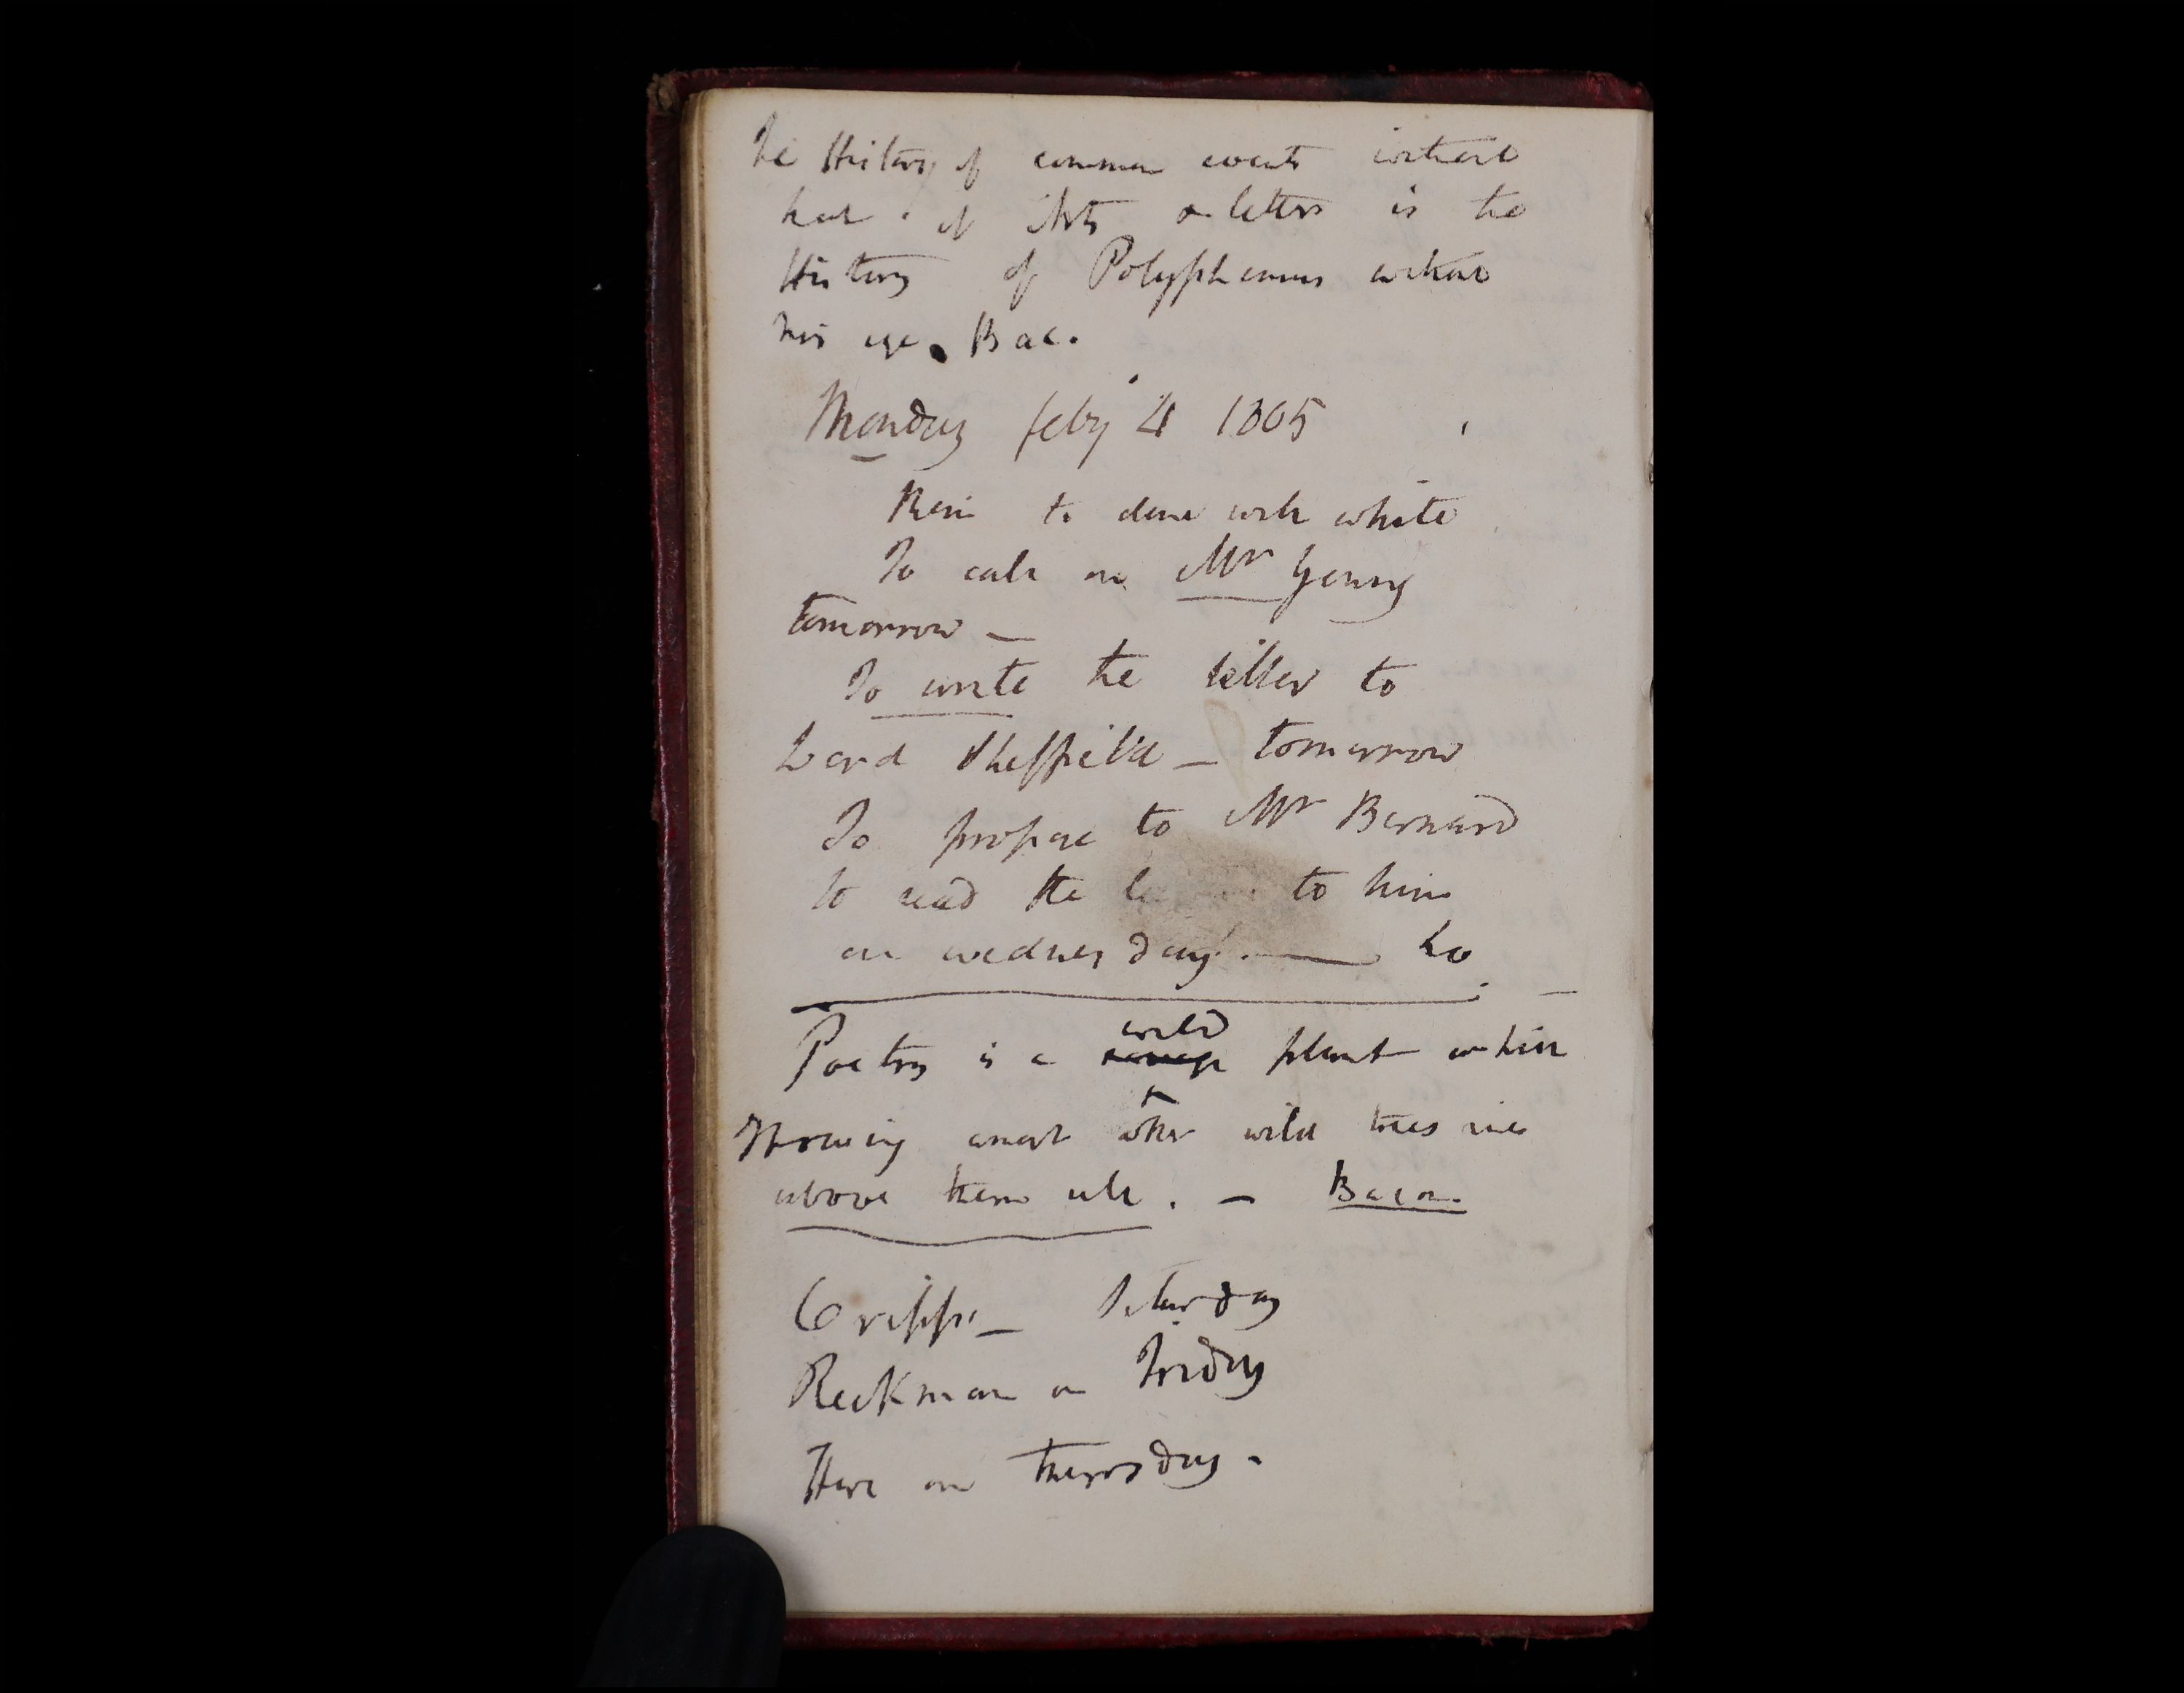 The History of common events without
that of Arts or letters is the
History of Polyphemus without
his eye. Bac.
Monday feby 4 1805
Rem to dine with white
To call on Mr Young
tomorrow —
To write the letter to
Lord Sheffield — tomorrow
To propose to Mr Bernard
to read the to him
on wednesday. — to
wild
Poetry is a savage plant which
Throwing amost other wild trees rises
above them all. — Bacon
Cripps — Saturday
Rickman on Friday
Here on Thursday.